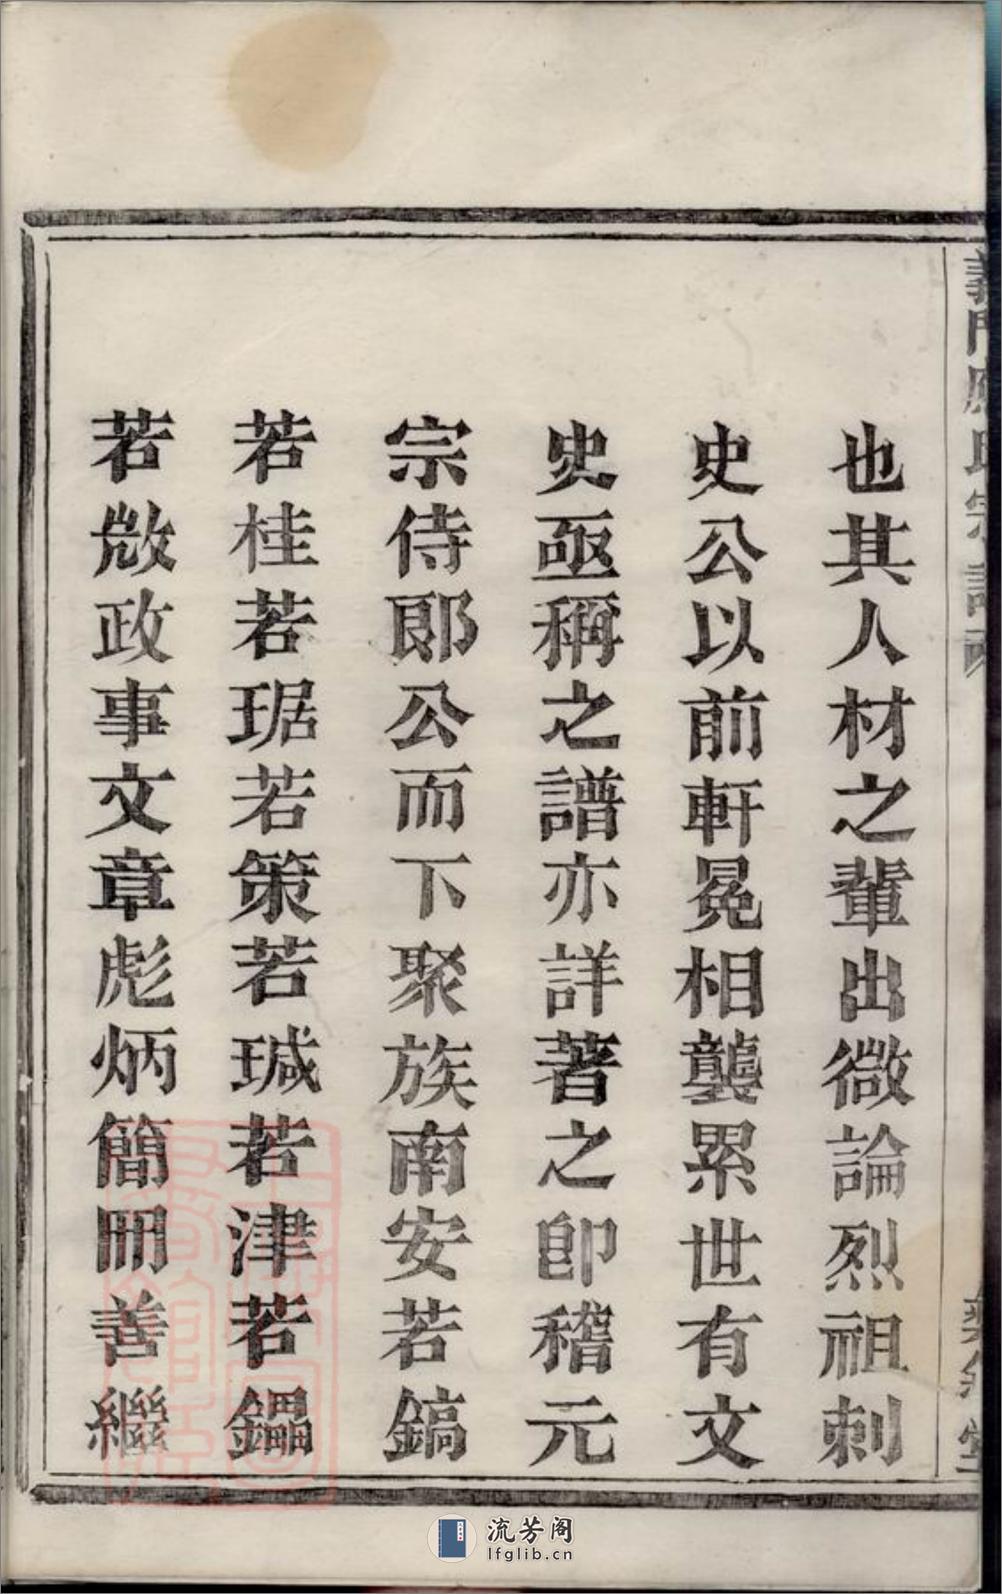 也其人材之輩出微論烈祖刺
史公以前軒冕相襲累世有文
史亟稱之譜亦詳著之卽稽元
宗侍郞公而下聚族南安若鎬
若桂若琚若策若瑊若津若鑘
若敚政事文章彪炳簡冊善繼
流芳阁
lfglib.cn